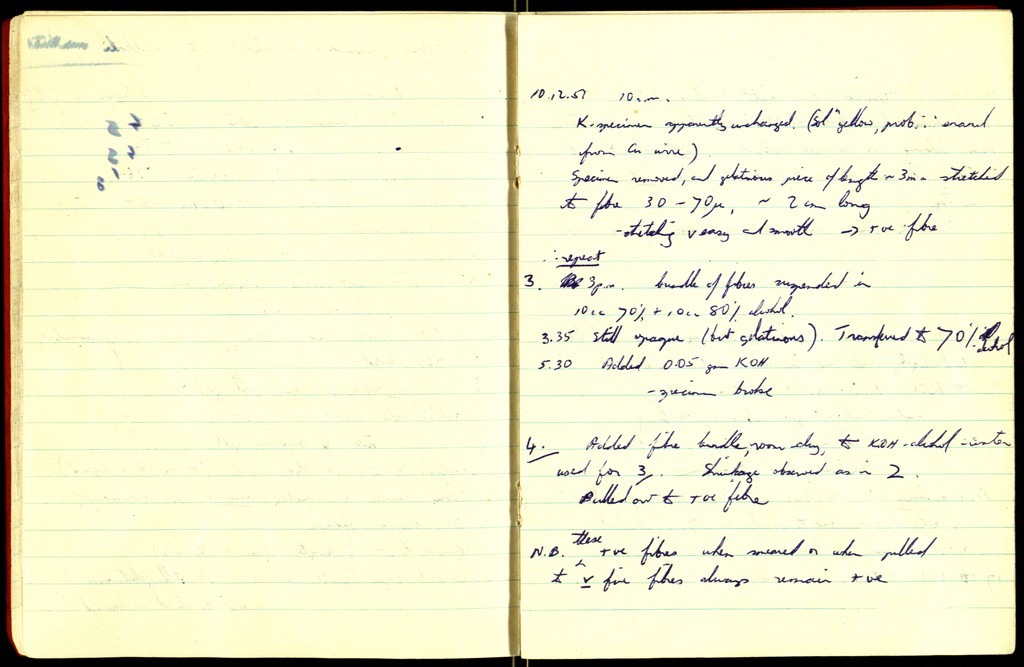 10.12.51 10 a.m.
K-specimen apparently unchanged. (Solⁿ yellow, prob. ∵ enamel
from Cu wire)
Specimen removed, and gelatinous piece of length ~ 3mm stretched
to fibre 30 - 70μ, ~ 2 cm long
- stretching v easy and smooth → +ve fibre
∴ repeat
3. 3 p.m. bundle of fibres suspended in
10 cc 70% + 10 cc 80% alcohol.
3.35 Still opaque (but gelatinous). Transferred to 70% alcohol
5.30 Added 0.05 gm KOH
- specimen broke
4. Added fibre bundle, room-dry, to KOH-alcohol-water
used for 3. Shrinkage observed as in 2.
Pulled out to +ve fibre
N.B. these +ve fibres when smeared or when pulled
to v fine fibres always remain +ve